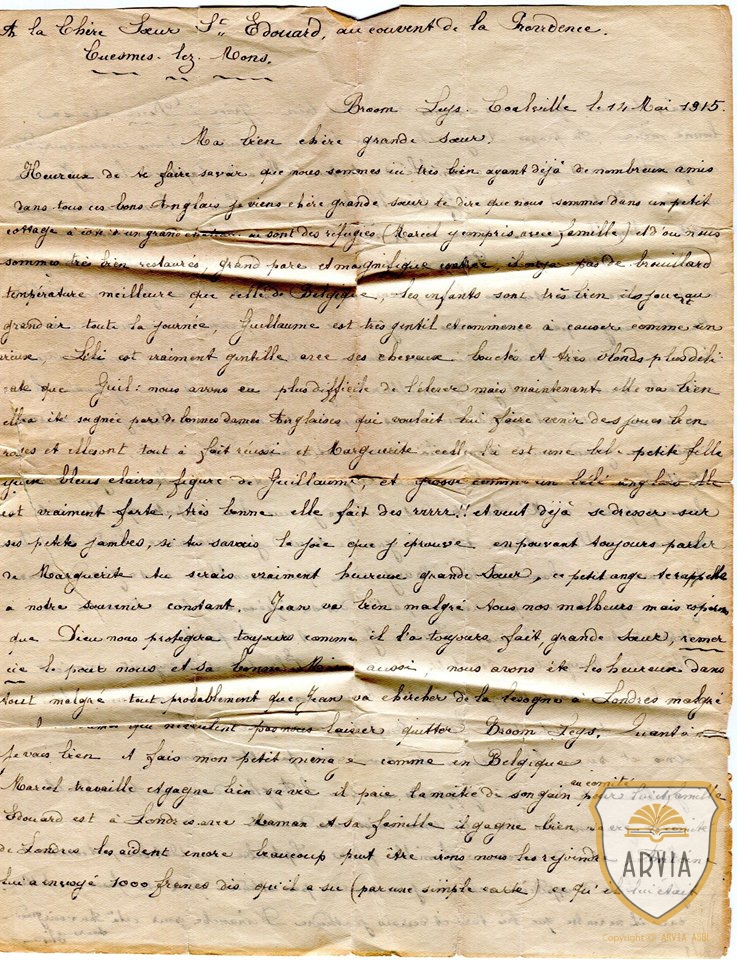 A la Chère Sœur St Edouard, au couvent de la Providence.
Cuesmes-lez-Mons.
Broom Leys. Coalville le 14 Mai 1915.
Ma bien chère grande sœur.
Heureux de te faire savoir que nous sommes ici très bien ayant déjà de nombreux amis
dans tous ces bons Anglais je viens chère grande sœur te dire que nous sommes dans un petit
cottage à côté d'un grand château où sont des réfugiés (Marcel y compris avec famille) et d'où nous
sommes très bien restaurés, grand parc et magnifique contrée, il n'y a pas de brouillard
température meilleure que celle de Belgique, les enfants sont très bien ils jouent au
grand air toute la journée, Guillaume est très gentil et commence à causer comme un
vieux, Lili est vraiment gentille avec ses cheveux bouclés et très blonds plus déli
cate que Guil: nous avons eu plus difficile de l'élever mais maintenant elle va bien
elle a été soignée par de bonnes dames Anglaises qui voulait lui faire venir des joues bien
roses et elles ont tout à fait réussi et Marguerite celle là est une belle petite fille
yeux bleus clairs, figure de Guillaume, et grosse comme un bébé anglais elle
est vraiment forte, très bonne elle fait des rrrrr!! et veut déjà se dresser sur
ses petites jambes, si tu savais la joie que j'éprouve en pouvant toujours parler
de Marguerite tu serais vraiment heureuse grande Sœur, ce petit ange te rappelle
à notre souvenir constant. Jean va bien malgré tous nos malheurs mais espérons
que Dieu nous protègera toujours comme il l'a toujours fait, grande sœur, remer
cie le pour nous et sa bonne Mère aussi, nous avons été les heureux dans
tout malgré tout probablement que Jean va chercher de la besogne à Londres malgré
qui ne veulent pas nous laisser quitter Broom Leys. Quant à moi
je vais bien et fais mon petit ménage comme en Belgique
Marcel travaille et gagne bien sa vie il paie la moitié de son gain au comité pour famille
Edouard est à Londres avec Maman et sa famille il gagne bien, comité
de Londres les aident encore beaucoup peut être irons nous les rejoindre
lui a envoyé 1000 francs dis qu'il a su (par une simple carte) ce qu'
ARVIA
Copyright © ARVIA ASBL